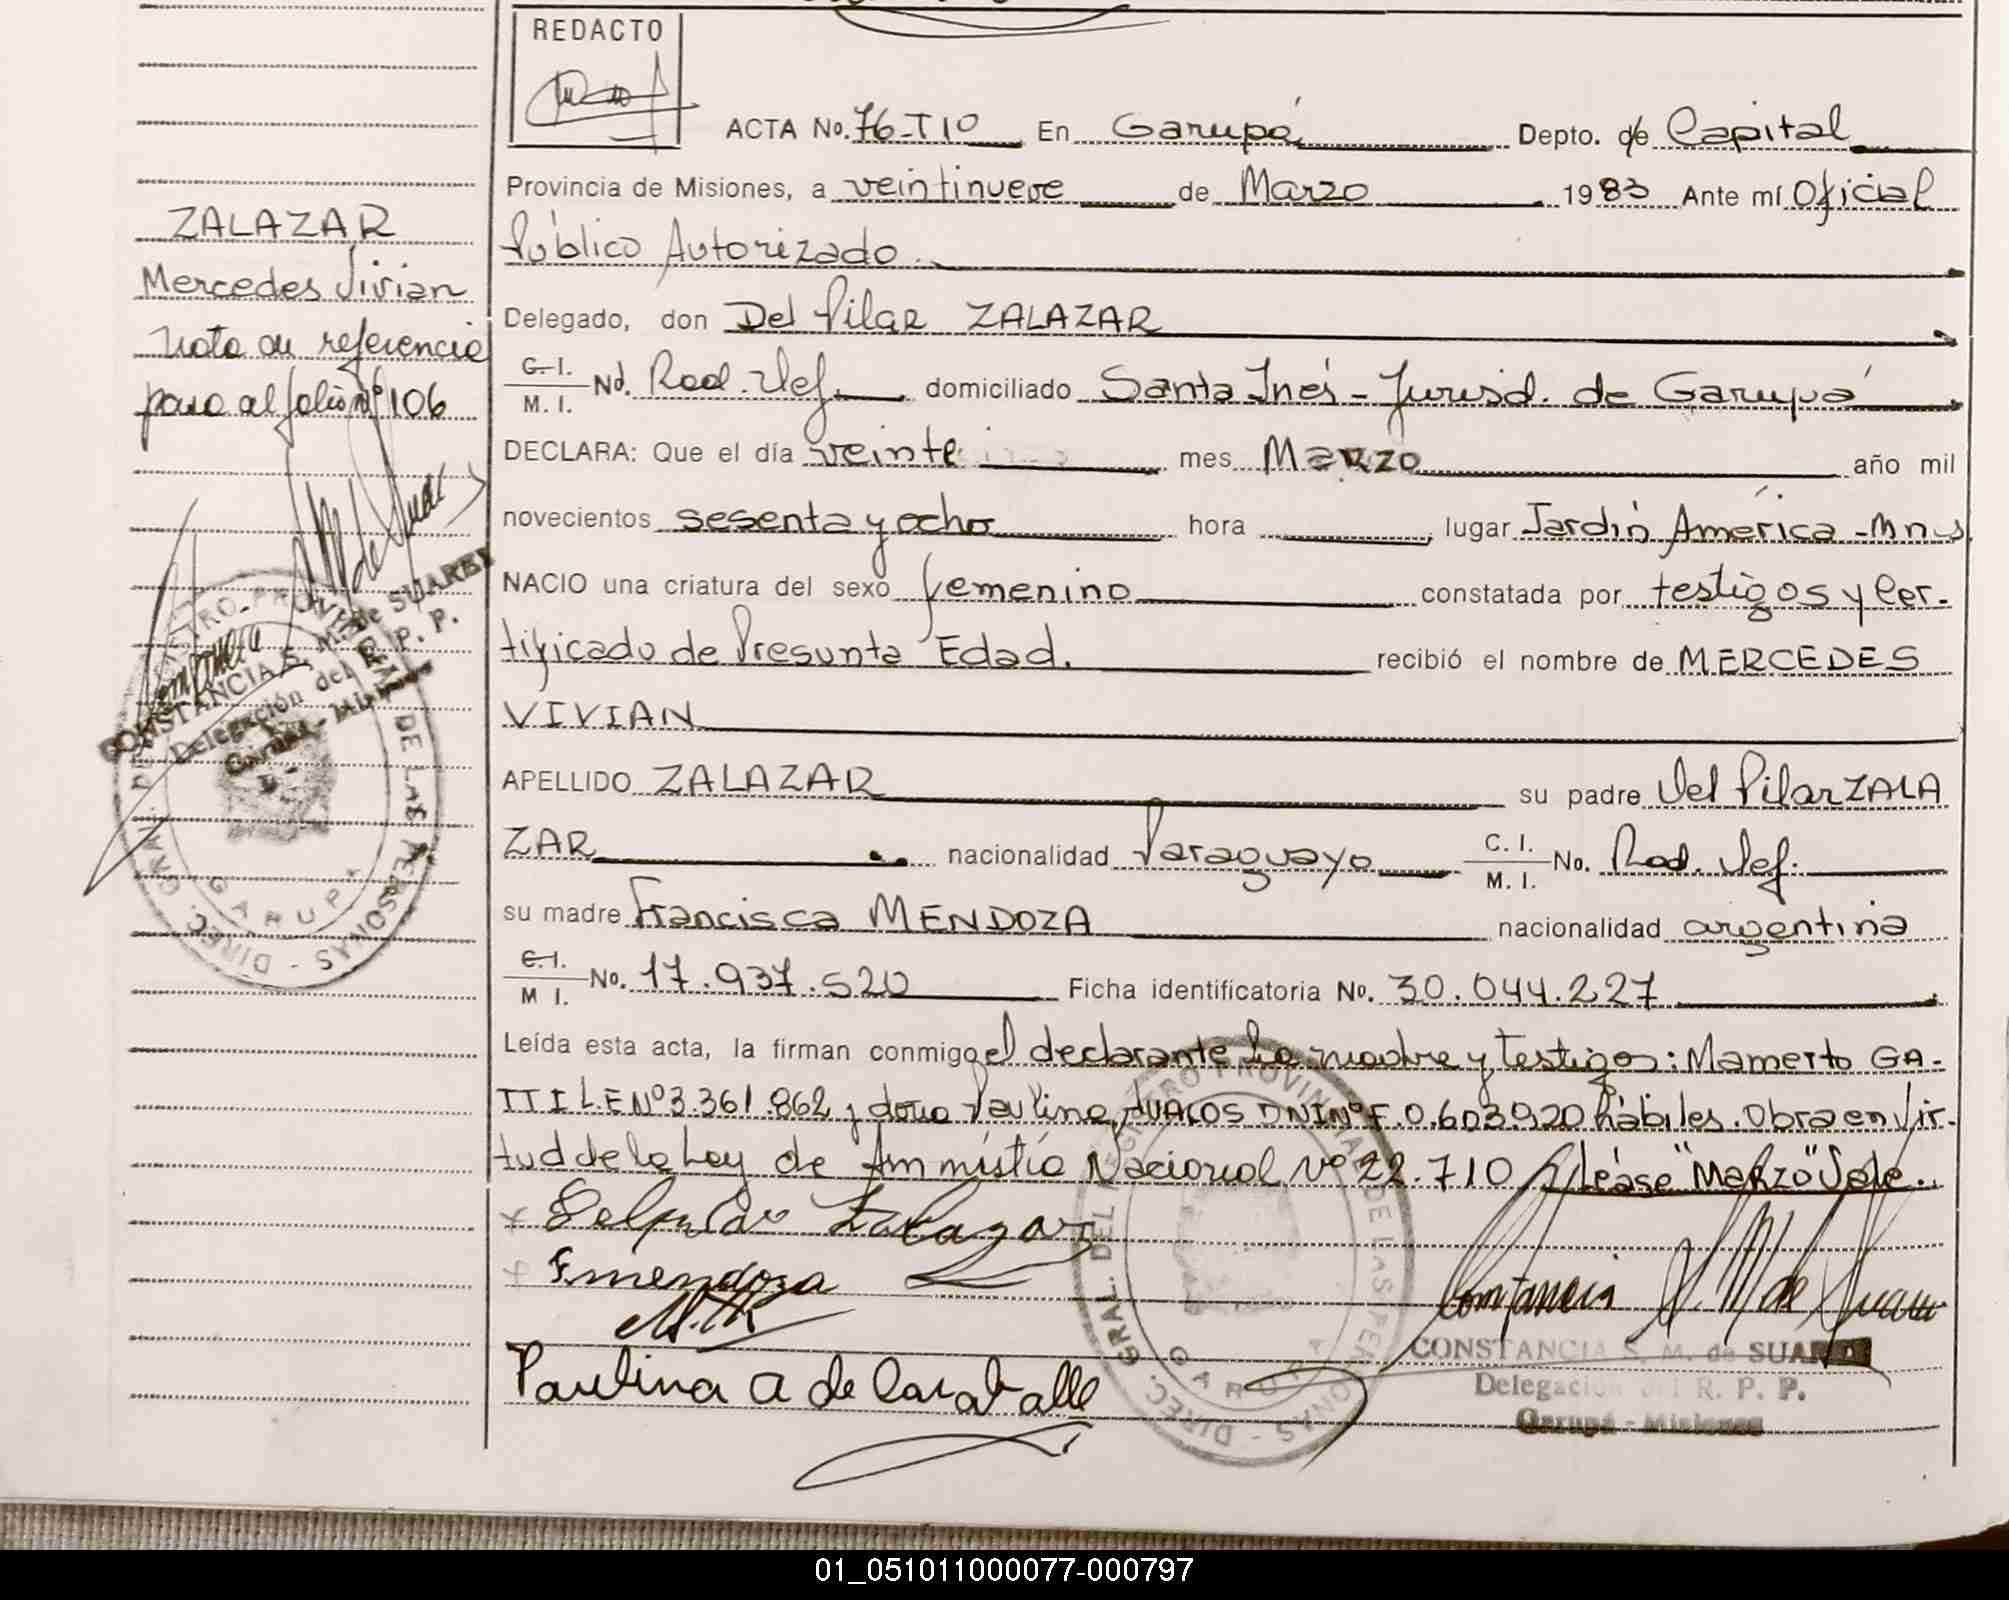 REDACTO
ACTA No. 76-T10 En Garupá Depto. de Capital
Provincia de Misiones, a veintinueve de Marzo 1983 Ante mí Oficial
Público Autorizado
Delegado, don Del Pilar ZALAZAR
C.I. M.I. No. Rad. Def. domiciliado Santa Inés - Jurisd. de Garupá
DECLARA: Que el día veinte mes Marzo año mil
novecientos sesenta y ocho hora lugar Jardín América - Mnes
NACIO una criatura del sexo femenino constatada por testigos y Cer-
tificado de Presunta Edad. recibió el nombre de MERCEDES
VIVIAN
APELLIDO ZALAZAR su padre Del Pilar ZALA
ZAR nacionalidad Paraguayo C.I. M.I. No. Rad. Def.
su madre Francisca MENDOZA nacionalidad argentina
C.I. M I. No. 17.937.520 Ficha identificatoria No. 30.044.227
Leída esta acta, la firman conmigo el declarante la madre y testigos: Mamerto GA-
TTI L.E Nº 3.361.862 y doña Paulina AVALOS DNI Nº F.0.603.920 hábiles. Obra en Vir-
tud de la Ley de Ammistía Nacional Nº 22.710 Léase "MARZO" Vale.
x Delpilar Zalazar
x F mendoza
Paulina A de Caraballe
Constancia S. M de Suarez
CONSTANCIA S. M. de SUAREZ
Delegación del R. P. P.
Garupá - Misiones
DIREC. GRAL. DEL REGISTRO PROVINCIAL DE LAS PERSONAS -
GARUPA
ZALAZAR
Mercedes Vivian
Nota de referencia
pase al folio nº 106
CONSTANCIA S. M. de SUAREZ
Delegación del R. P. P.
Garupá - Misiones
DIREC. GRAL. DEL REGISTRO PROVINCIAL DE LAS PERSONAS -
GARUPA
01_051011000077-000797